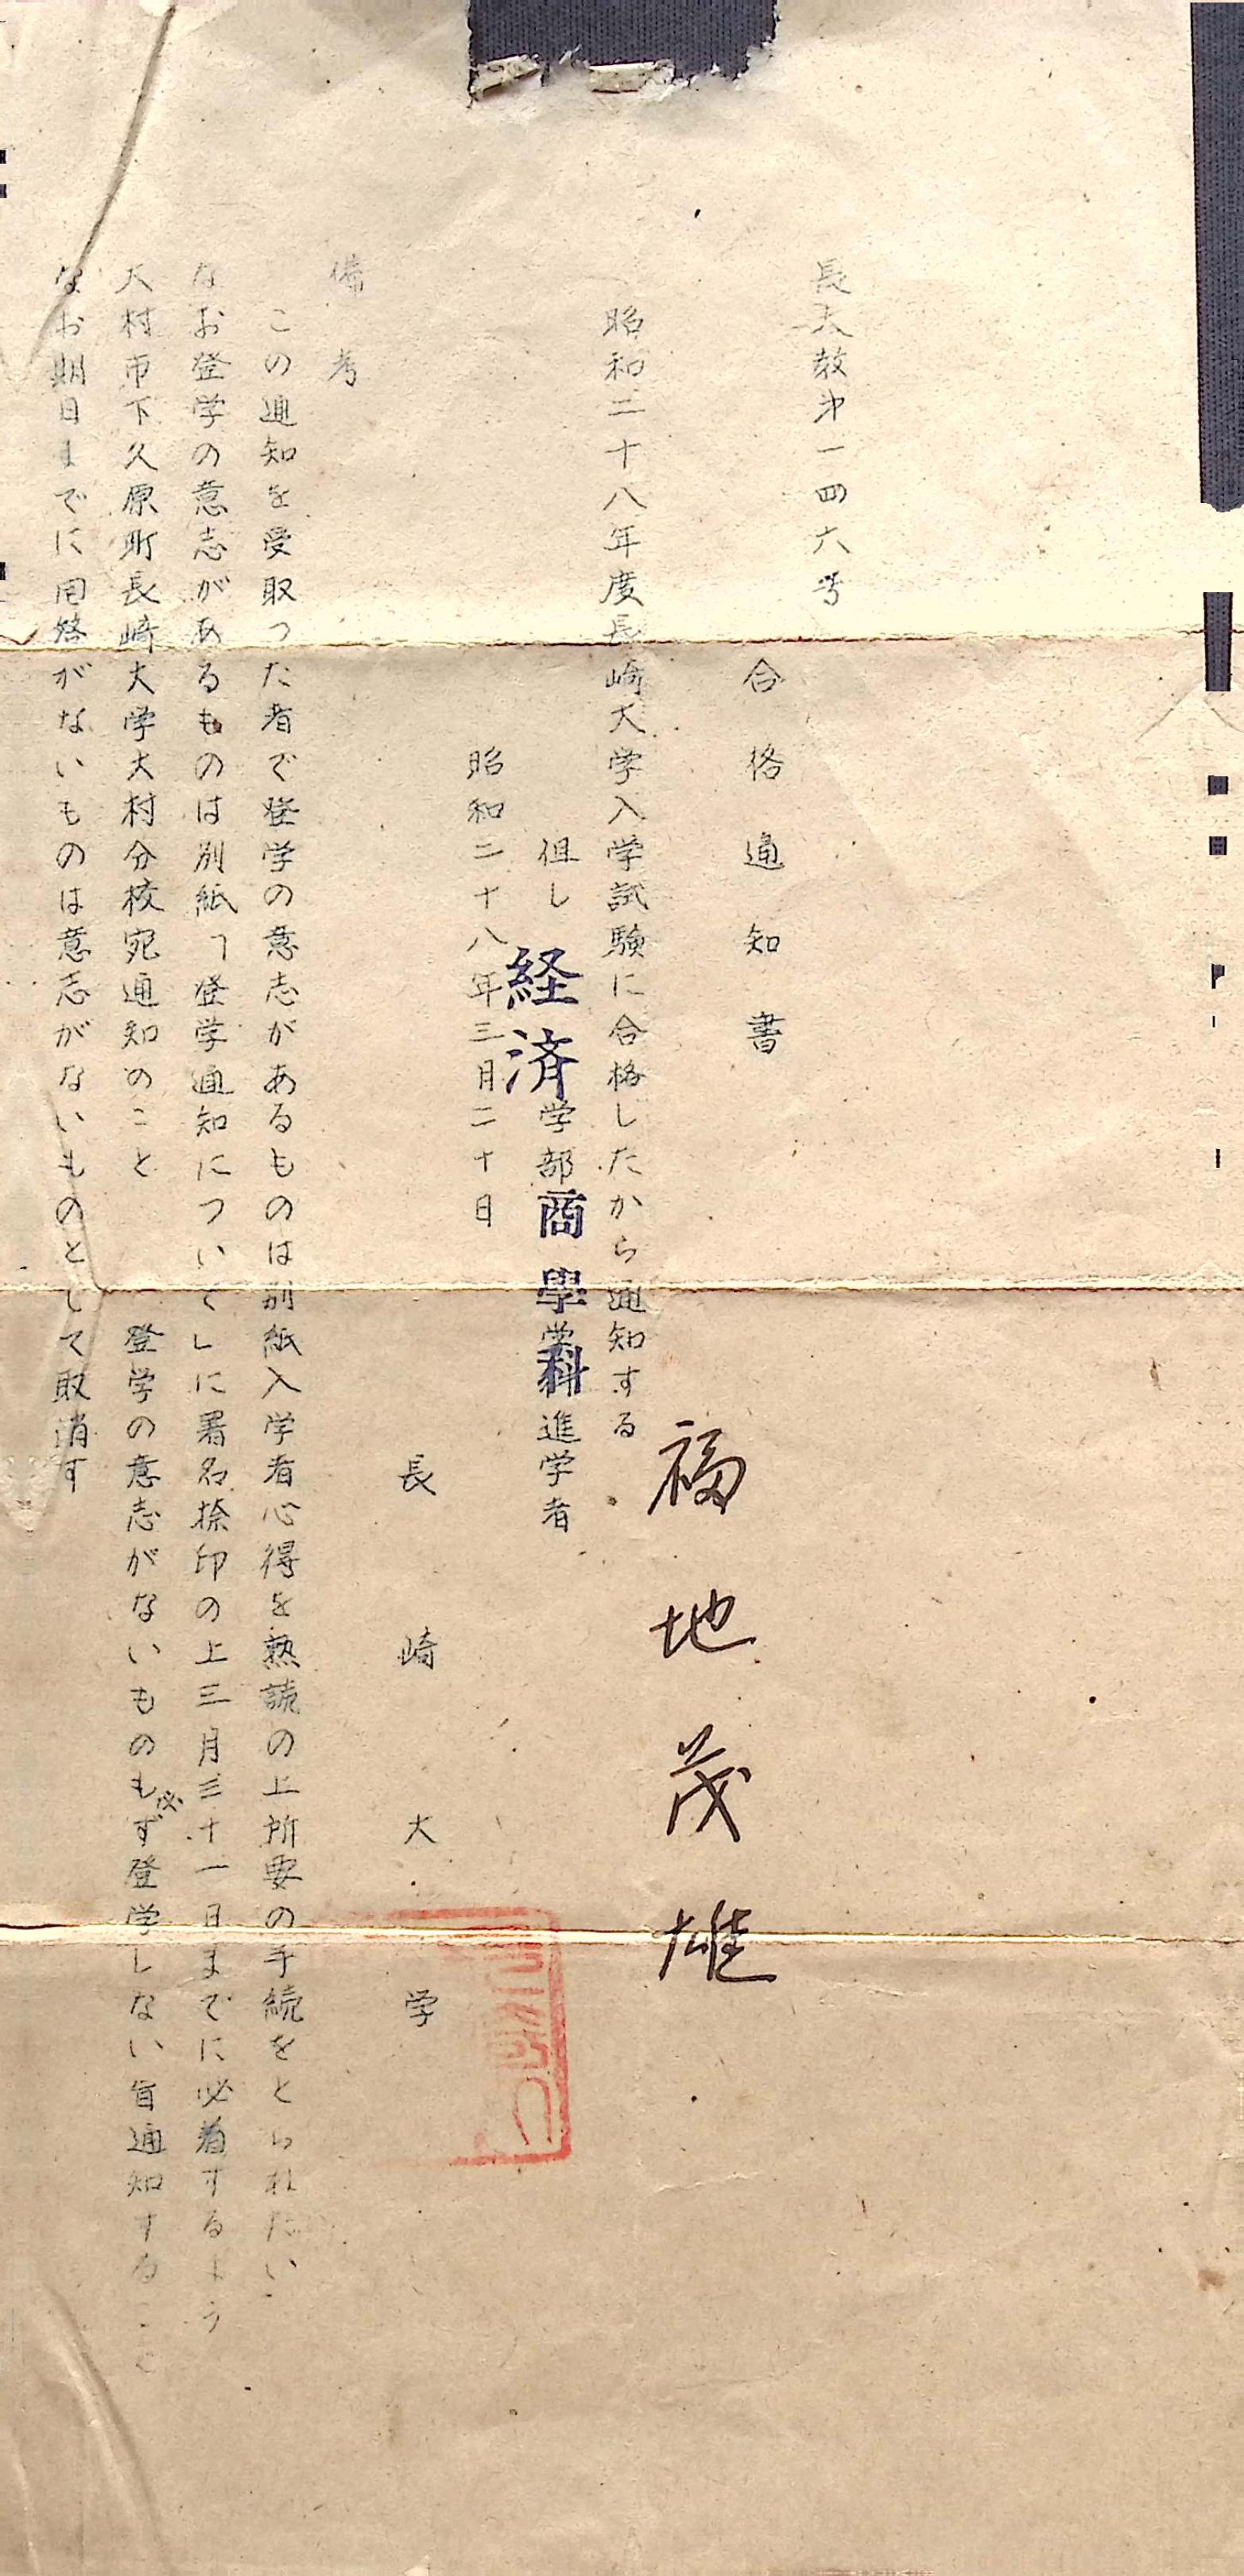 長大教第一四六号
合格通知書
福地茂雄
昭和二十八年度長崎大学入学試験に合格したから通知する
但し経済学部商學学科進学者
昭和二十八年三月二十日
長崎大学
備考
この通知を受取った者で登学の意志があるものは別紙入学者心得を熟読の上所要の手続をとられたい
なお登学の意志があるものは別紙「登学通知について」に署名捺印の上三月三十一日までに必着するよう
大村市下久原町長崎大学大村分校宛通知のこと 登学の意志がないものも必ず登学しない旨通知すること
なお期日までに回答がないものは意志がないものとして取消す